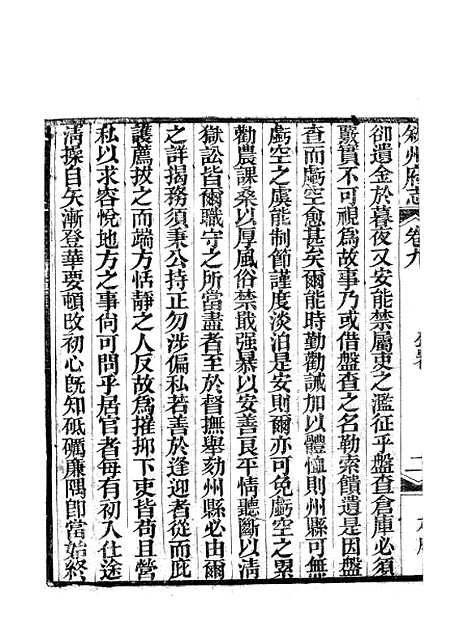 敘州府志 卷九 公署 二
卻遺金於暮夜又安能禁屬吏之濫征乎盤查倉庫必須
嚴實不可視爲故事乃或借盤查之名勒索饋遺是因盤
查而虧空愈甚矣爾能時勤勸誡加以體恤則州縣可無
虧空之虞能制節謹度淡泊是安則爾亦可免虧空之累
勸農課桑以厚風俗禁戢强暴以安善良平情聽斷以淸
獄訟皆爾職守之所當盡者至於督撫舉劾州縣必由爾
之詳揭務須秉公持正勿涉偏私若善於逢迎者從而庇
護薦拔之而端方恬靜之人反故爲摧抑下吏皆苟且營
私以求容悅地方之事尙可問乎居官者每有初入仕途
淸操自矢漸登華要頓改初心旣知砥礪廉隅卽當始終